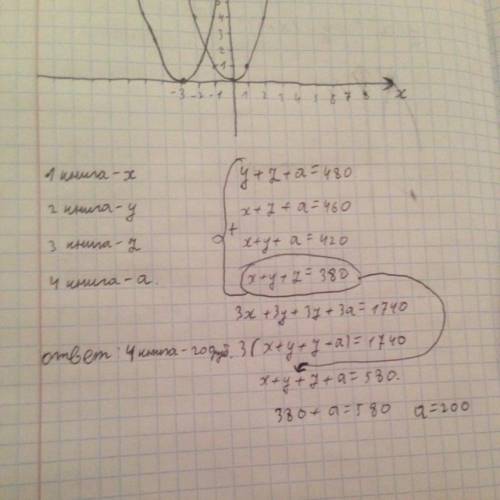 4
3
2
1
-3 -2 -1 1 2 3 4 5 6 7 8 x
1 книга - x
y + z + a = 480
2 книга - y
x + z + a = 460
+
3 книга - z
x + y + a = 420
4 книга - a.
x + y + z = 380
3x + 3y + 3z + 3a = 1740
ответ: 4 книга - руб. 3(x + y + z + a) = 1740
x + y + z + a = 580.
380 + a = 580 a = 200